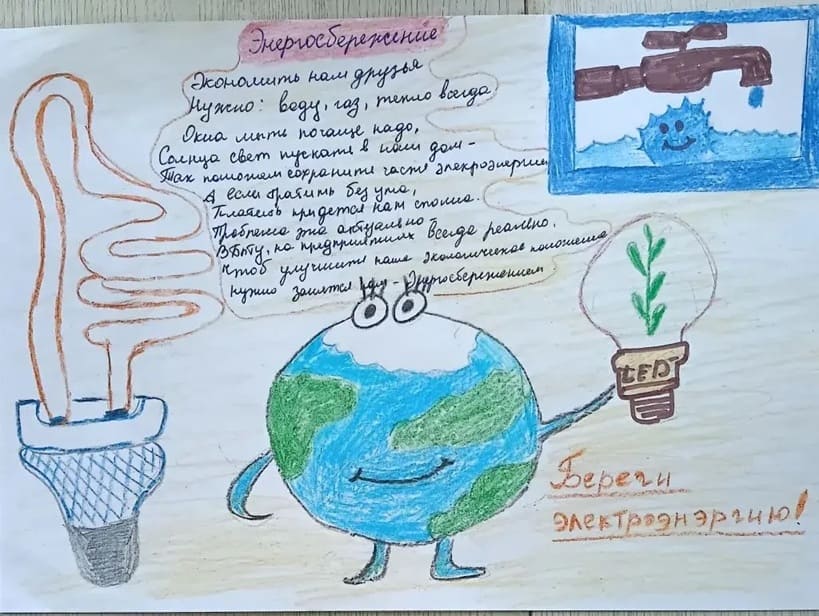 Энергосбережение
Экономить нам друзья
Нужно: воду, газ, тепло всегда
Окна мыть почаще надо,
Солнца свет пускать в наш дом-
Так поможем сохранить часть электроэнергии
А если тратить без ума,
Платить придется нам сполна.
Проблема эта актуально
В быту, на предприятиях всегда реально.
Чтоб улучшить наше экологическое положение
Нужно занятся нам - Энергосбережением
LED
Береги
электроэнэргию!